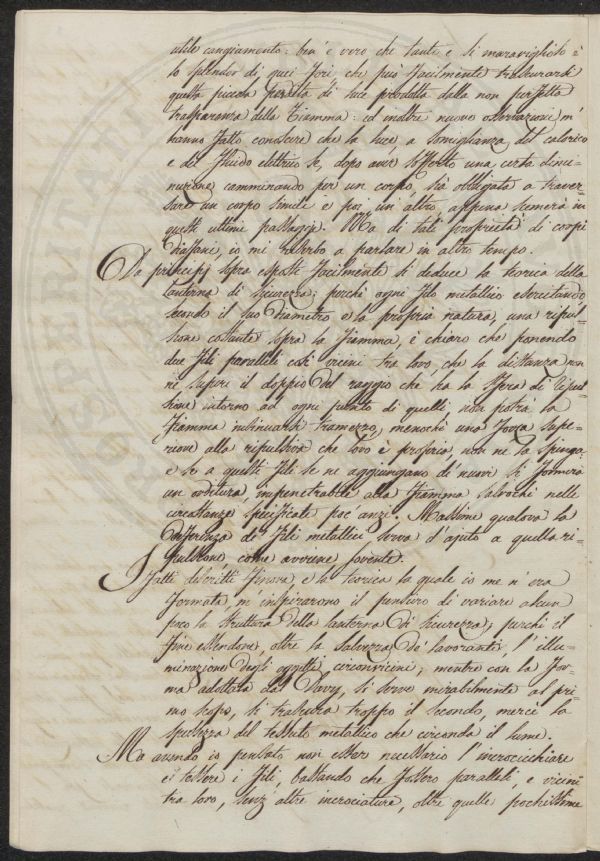 utile cangiamento: ben è vero che tanto e sì maraviglioso è
lo splendor di quei fori, che può facilmente trascurarsi
questa piccola perdita di luce prodotta dalla non perfetta
trasparenza della fiamma: ed inoltre nuove osservazioni m'
hanno fatto conoscere che la luce a somiglianza del calorico
e del fluido elettrico se, dopo aver sofferto una certa dimi-
nuzione camminando per un corpo, sia obbligata a traver-
sare un corpo simile e poi un altro, appena scemerà in
questi ultimi passaggi. Ma di tale proprietà di corpi
diafani, io mi riserbo a parlare in altro tempo.
Da principj sopra esposti facilmente si deduce la teorica della
Lanterna di sicurezza; perchè ogni filo metallico esercitando
secondo il suo diametro e la propria natura, una ripul-
sione costante sopra la fiamma, è chiaro che ponendo
due fili paralleli così vicini tra loro, che la distanza non
ne superi il doppio del raggio che ha la sfera di ripul-
sione intorno ad ogni punto di quelli non potrà la
fiamma insinuarsi tramezzo, menochè una forza supe-
riore alla ripulsiva che loro è propria, non ne la spinga.
e se a questi fili se ne aggiungano de' nuovi si formerà
un orditura, impenetrabile alla fiamma salvochè nelle
circostanze specificate poc'anzi. Massime qualora la
de' fili metallici serva d'ajuto a quella ri-
pulsione come avviene sovente.
I fatti descritti finora e la teorica la quale io me n'era
formata, m'inspirarono il pensiero di variare alcun
poco la struttura della lanterna di sicurezza; perchè il
fine essendone, oltre la salvezza de' lavoranti, l'illu-
minazione degli oggetti circonvicini, mentre con la for-
ma adottata da Davy, si serve mirabilmente al pri-
mo scopo, si trascura troppo il secondo, mercè la
spessezza del tessuto metallico che circonda il lume.
Ma avendo io pensato non esser necessario l'incrocicchiare
e tessere i fili, bastando che fossero paralleli, e vicini
tra loro, senz'altre incrociature, oltre quelle pochissime